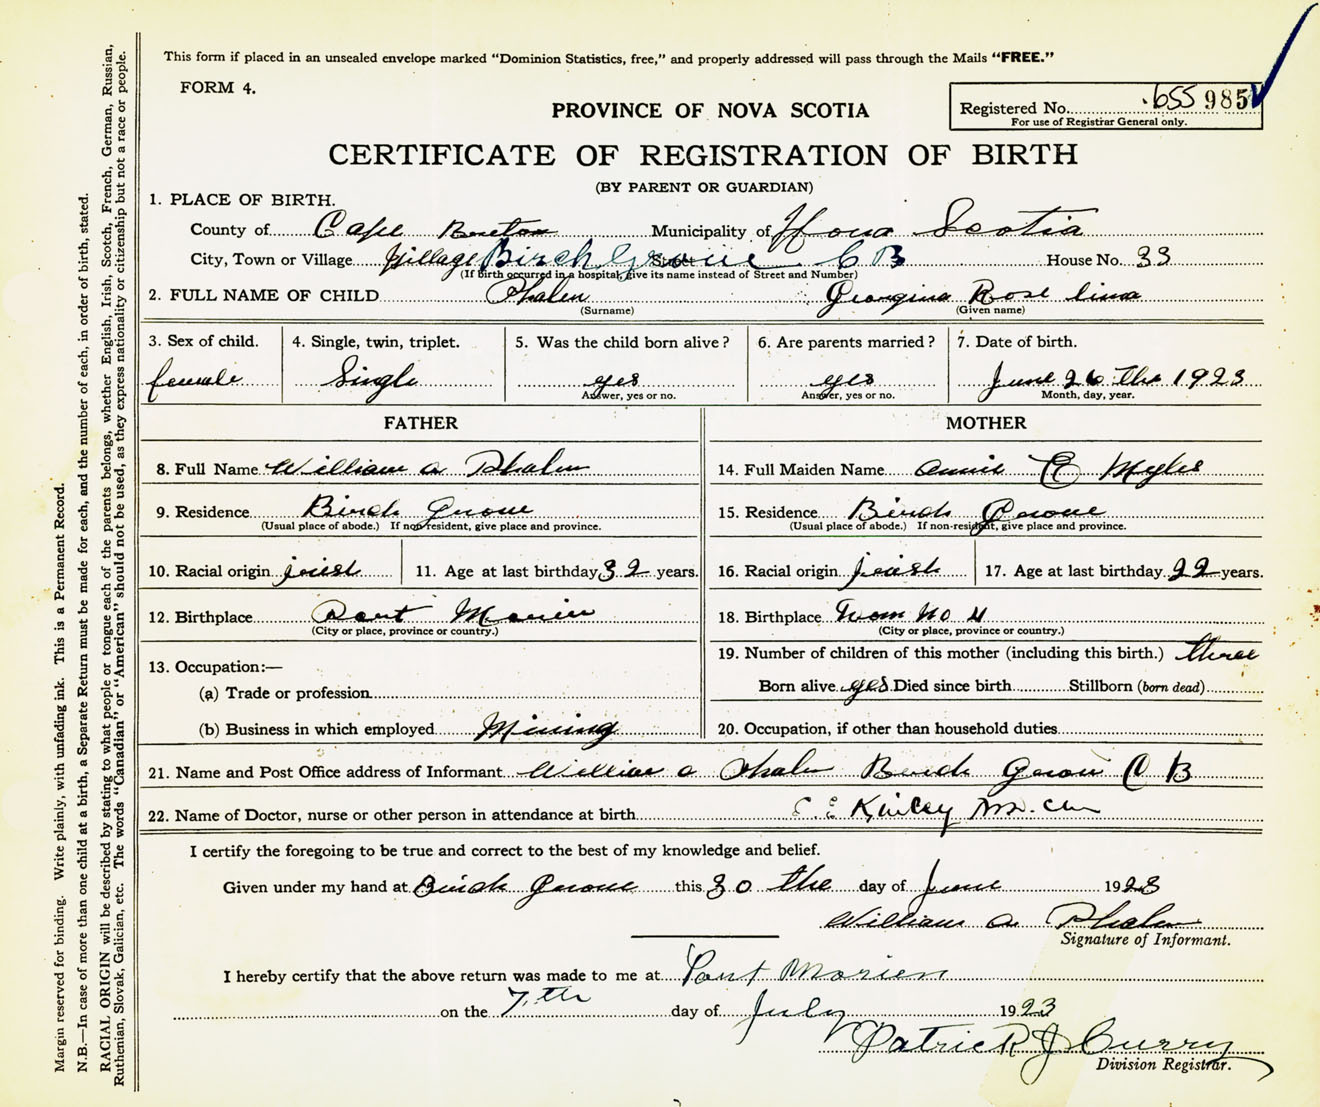 This form if placed in an unsealed envelope marked “Dominion Statistics, free,” and properly addressed will pass through the Mails “FREE.”
FORM 4.
PROVINCE OF NOVA SCOTIA
Registered No. 655 985
For use of Registrar General only.
CERTIFICATE OF REGISTRATION OF BIRTH
(BY PARENT OR GUARDIAN)
1. PLACE OF BIRTH.
County of Cape Breton Municipality of Nova Scotia
City, Town or Village Village Birch Grove C B House No. 33
(If birth occurred in a hospital, give its name instead of Street and Number)
2. FULL NAME OF CHILD Phalen Georgina Rose lima
(Surname) (Given name)
3. Sex of child. 4. Single, twin, triplet. 5. Was the child born alive? 6. Are parents married? 7. Date of birth.
female Single yes yes June 26 the 1923
Answer, yes or no. Answer, yes or no. Month, day, year.
FATHER
8. Full Name William a Phalen
9. Residence Birch Grove
(Usual place of abode.) If non-resident, give place and province.
10. Racial origin irish 11. Age at last birthday 32 years.
12. Birthplace Port Morien
(City or place, province or country.)
13. Occupation:—
(a) Trade or profession
(b) Business in which employed Mining
MOTHER
14. Full Maiden Name annie E Myles
15. Residence Birch Grove
(Usual place of abode.) If non-resident, give place and province.
16. Racial origin irish 17. Age at last birthday 22 years.
18. Birthplace No 4
(City or place, province or country.)
19. Number of children of this mother (including this birth.) three
Born alive yes Died since birth Stillborn (born dead)
20. Occupation, if other than household duties
21. Name and Post Office address of Informant William a Phalen Birch Grove C B
22. Name of Doctor, nurse or other person in attendance at birth
I certify the foregoing to be true and correct to the best of my knowledge and belief.
Given under my hand at Birch Grove this 30 the day of June 1923
William a Phalen
Signature of Informant.
I hereby certify that the above return was made to me at Port Morien
on the 7th day of July 1923
Patrick J Curry
Division Registrar.
Margin reserved for binding. Write plainly, with unfading ink. This is a Permanent Record.
N.B.—In case of more than one child at a birth, a Separate Return must be made for each, and the number of each, in order of birth, stated.
RACIAL ORIGIN will be described by stating to what people or tongue each of the parents belongs, whether English, Irish, Scotch, French, German, Russian,
Ruthenian, Slovak, Galician, etc. The words “Canadian” or “American” should not be used, as they express nationality or citizenship but not a race or people.